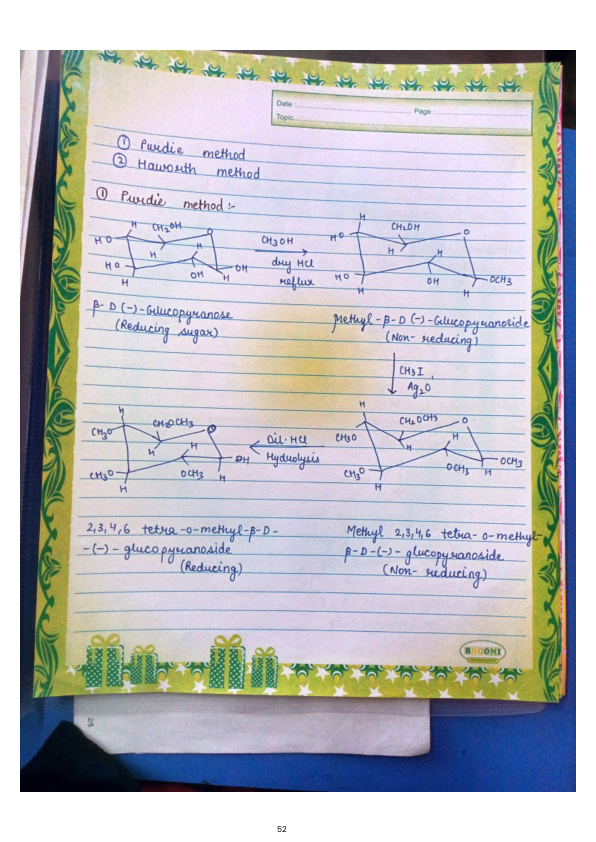 Date :
Page :
Topic
① Purdie method
② Haworth method
① Purdie method :-
H CH2OH O
HO H H
HO OH H OH
H
CH3OH
dry HCl
reflux
H CH2OH O
HO H H
HO OH OCH3
H H
β- D (-)-Glucopyranose
(Reducing sugar)
Methyl-β-D (-)-Glucopyranoside
(Non- reducing)
CH3I,
Ag2O
H CH2OCH3 O
CH3O H H
CH3O OCH3 H OH
H
Dil·HCl
Hydrolysis
H CH2OCH3 O
CH3O H H
CH3O OCH3 H OCH3
H
2,3,4,6 tetra -o-methyl-β-D-
-(-)- glucopyranoside
(Reducing)
Methyl 2,3,4,6 tetra- o-methyl-
β-D-(-)- glucopyranoside
(Non- reducing)
BHOOMI
25
52